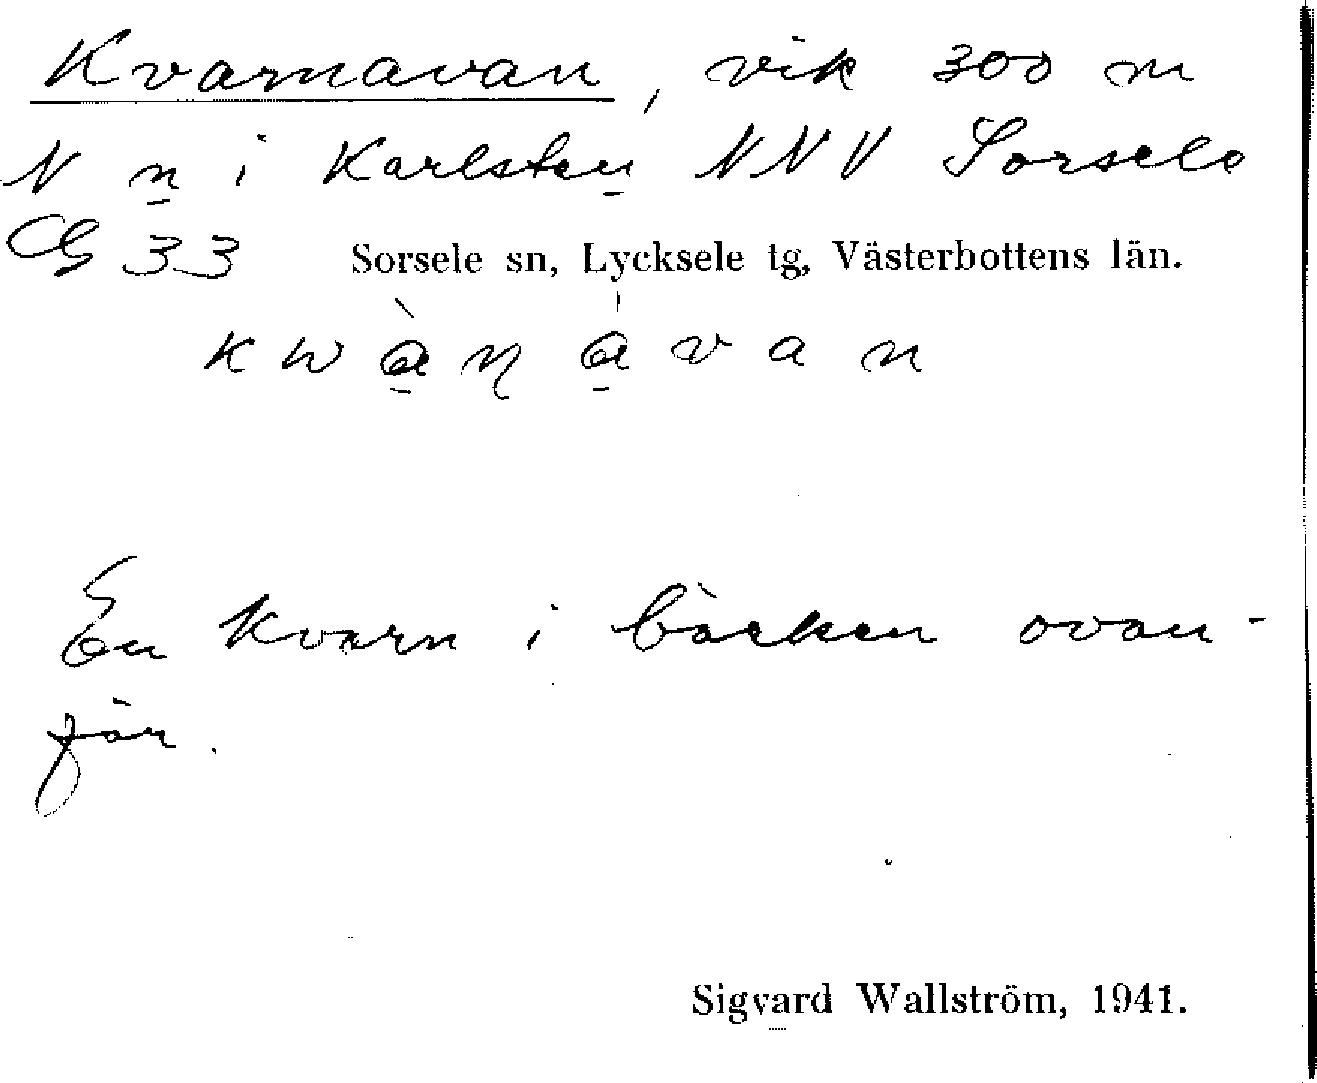 Kvarnavan, vik 300 m
N n i Karlsten NNV Sorsele
CG 33 Sorsele sn, Lycksele tg, Västerbottens län.
En kvarn i bäcken ovan-
för.
Sigvard Wallström, 1941.